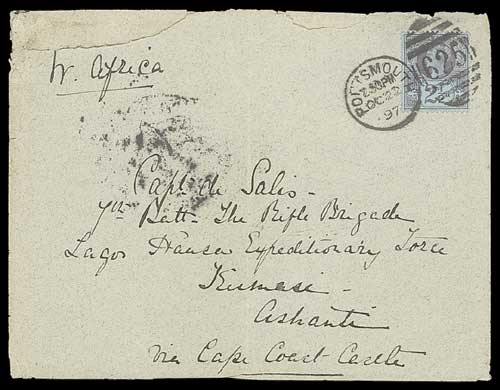 W. Africa
PORTSMOUTH
7.30PM
OC 22
97
625
2½
Capt. de Salis -
7th Batt - The Rifle Brigade
Lagos Hausa Expeditionary Force
Kumasi -
Ashanti
via Cape Coast Castle